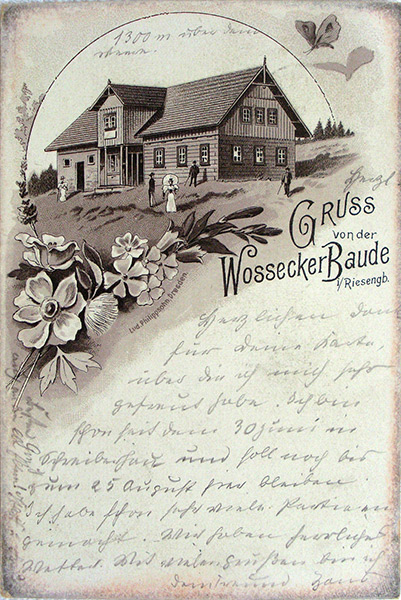 1300 m über dem
Meere.
GRUSS
von der
Wossecker Baude
i/Riesengb.
Lud. Philippsohn, Dresden.
Herzl
Herzlichen Dank
für deine Karte,
über die ich mich sehr
gefreut habe. Ich bin
schon seit dem 30 Juni in
Schreiberhau und soll noch bis
zum 25 August hier bleiben.
Ich habe schon sehr viele Partieen
gemacht. Wir haben herrliches
Wetter. Mit vielen Grüßen bin ich
dein Freund Hans